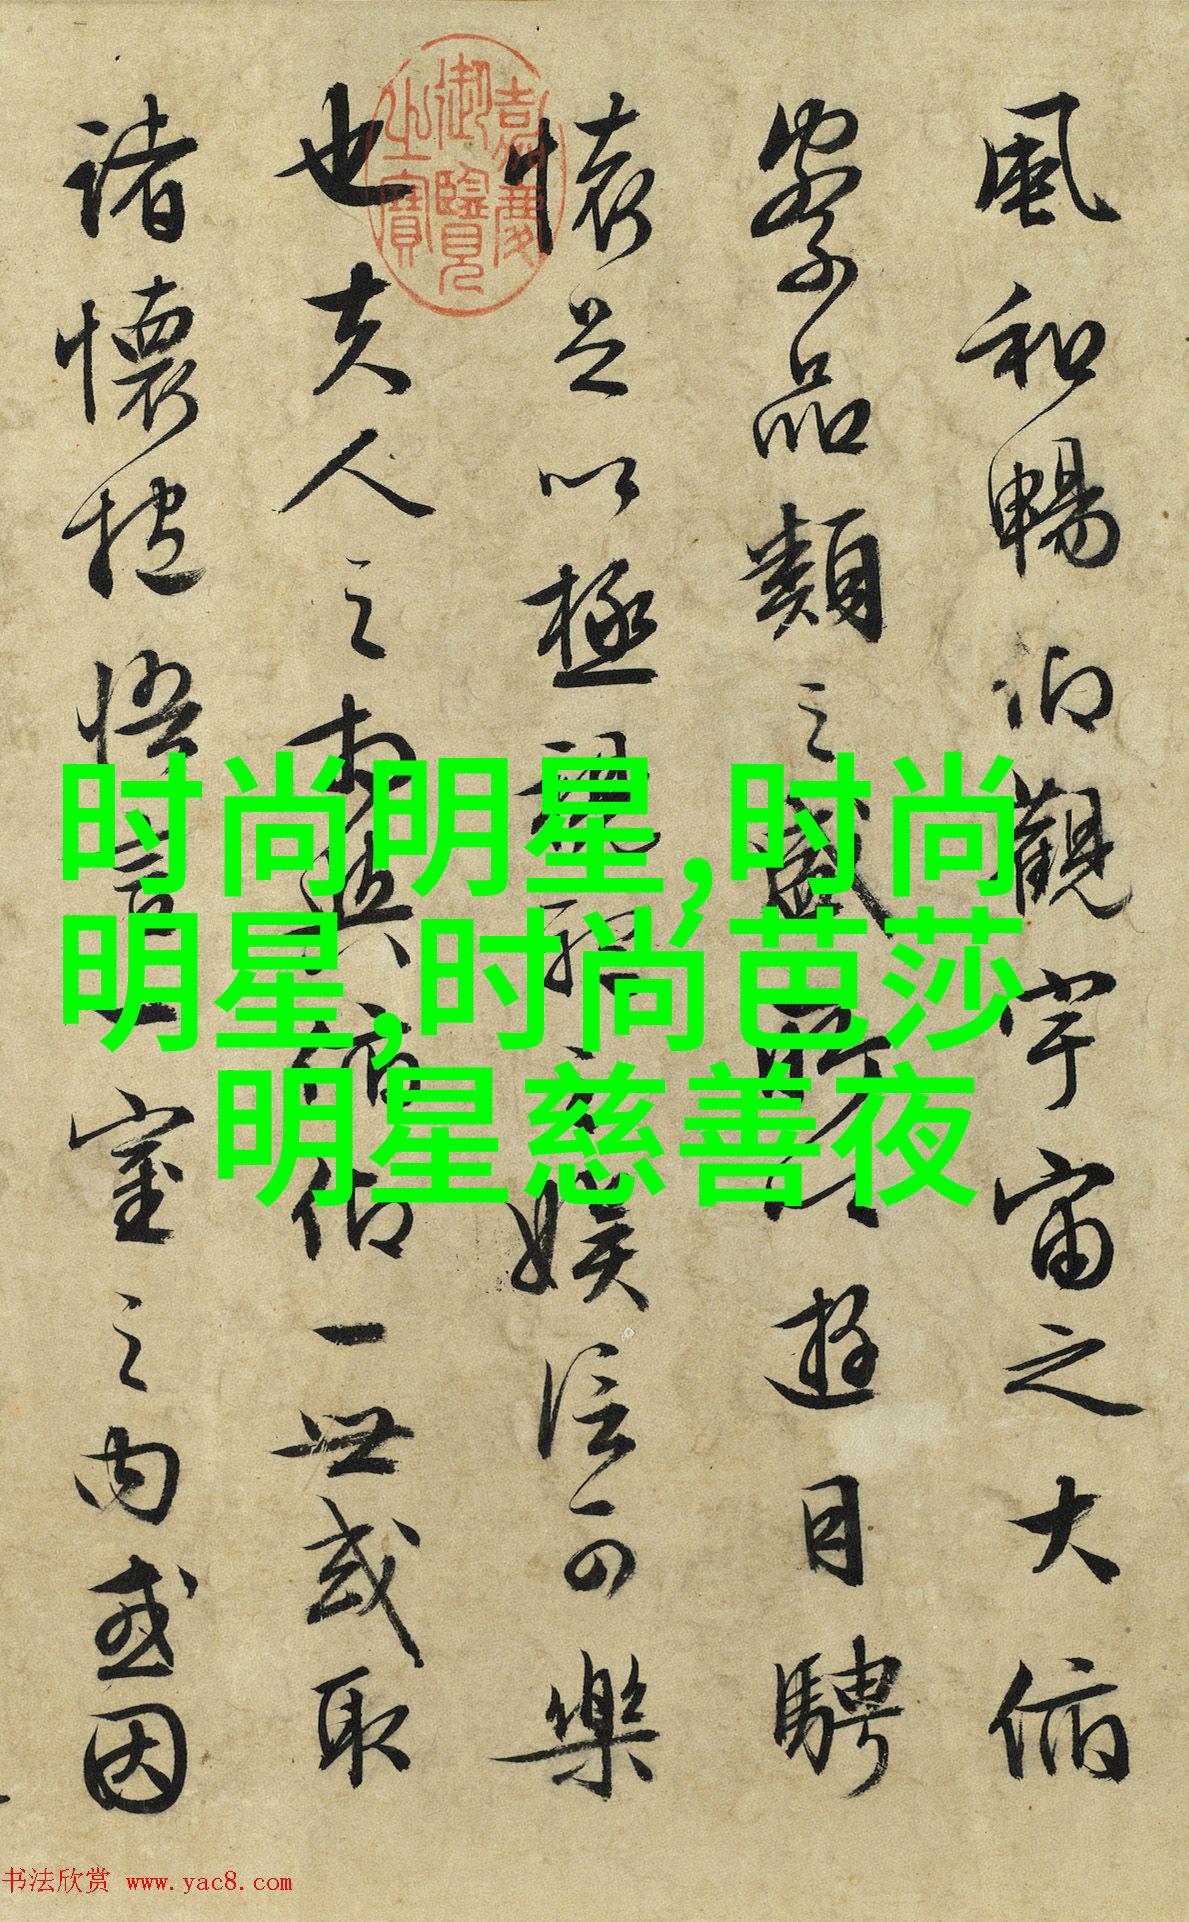 風和暢仰觀宇宙之大俯
察品類之盛所以遊目騁
懷足以極視聽之娛信可樂
也夫人之相與俯仰一世或取
諸懷抱悟言一室之内或因
嘉慶
御覽
之寶
时尚明星,时尚
明星,时尚芭莎
明星慈善夜
书法欣赏 www.yac8.com